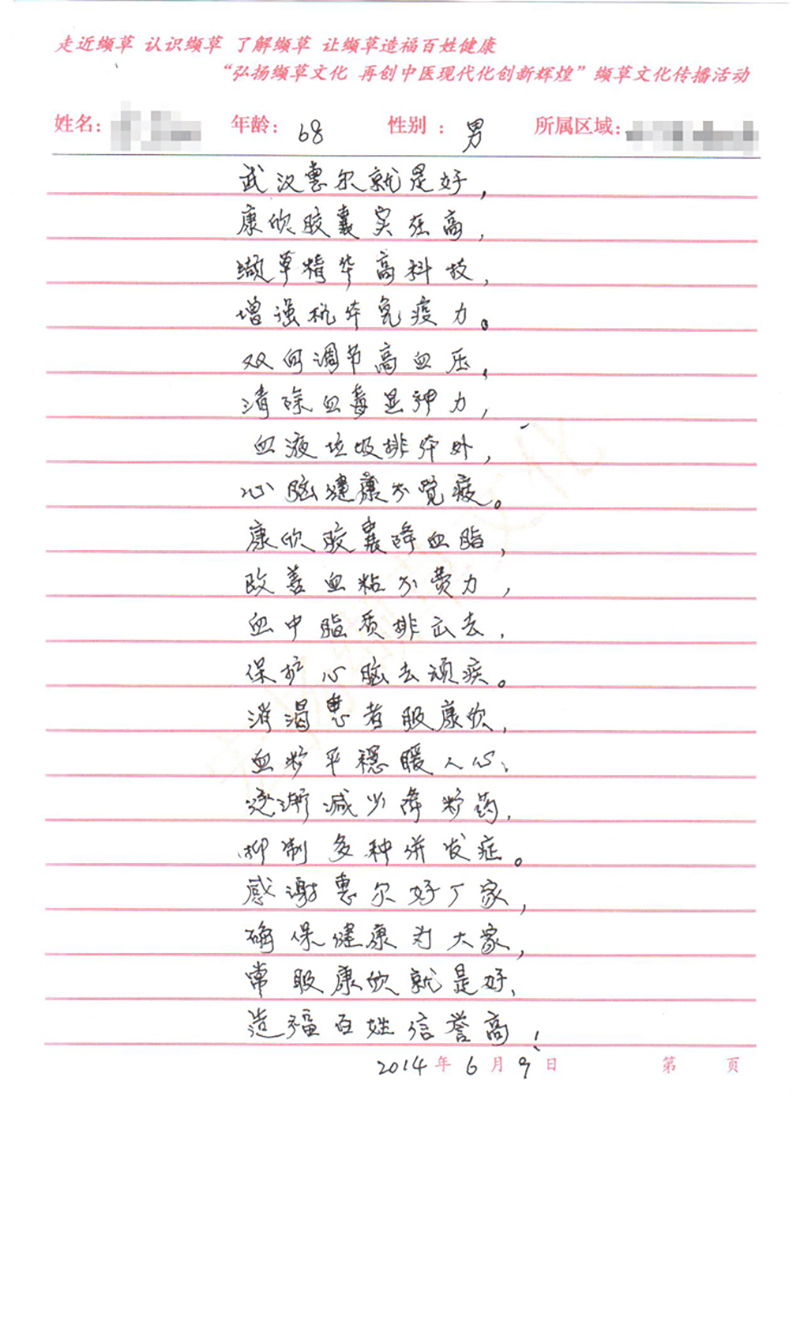 走近缬草 认识缬草 了解缬草 让缬草造福百姓健康
“弘扬缬草文化 再创中医现代化创新辉煌”缬草文化传播活动
姓名： 年龄：68 性别：男 所属区域：
武汉惠尔就是好，
康欣胶囊实在高，
缬草精华高科技，
增强机体免疫力。
双向调节高血压，
清除血毒是神力，
血液垃圾排体外，
心脑健康不觉疲。
康欣胶囊降血脂，
改善血粘不费力，
血中脂质排出去，
保护心脑去顽疾。
消渴患者服康欣，
血糖平稳暖人心，
逐渐减少降糖药，
抑制多种併发症。
感谢惠尔好厂家，
确保健康为大家，
常服康欣就是好，
造福百姓信誉高！
2014年6月9日 第 页